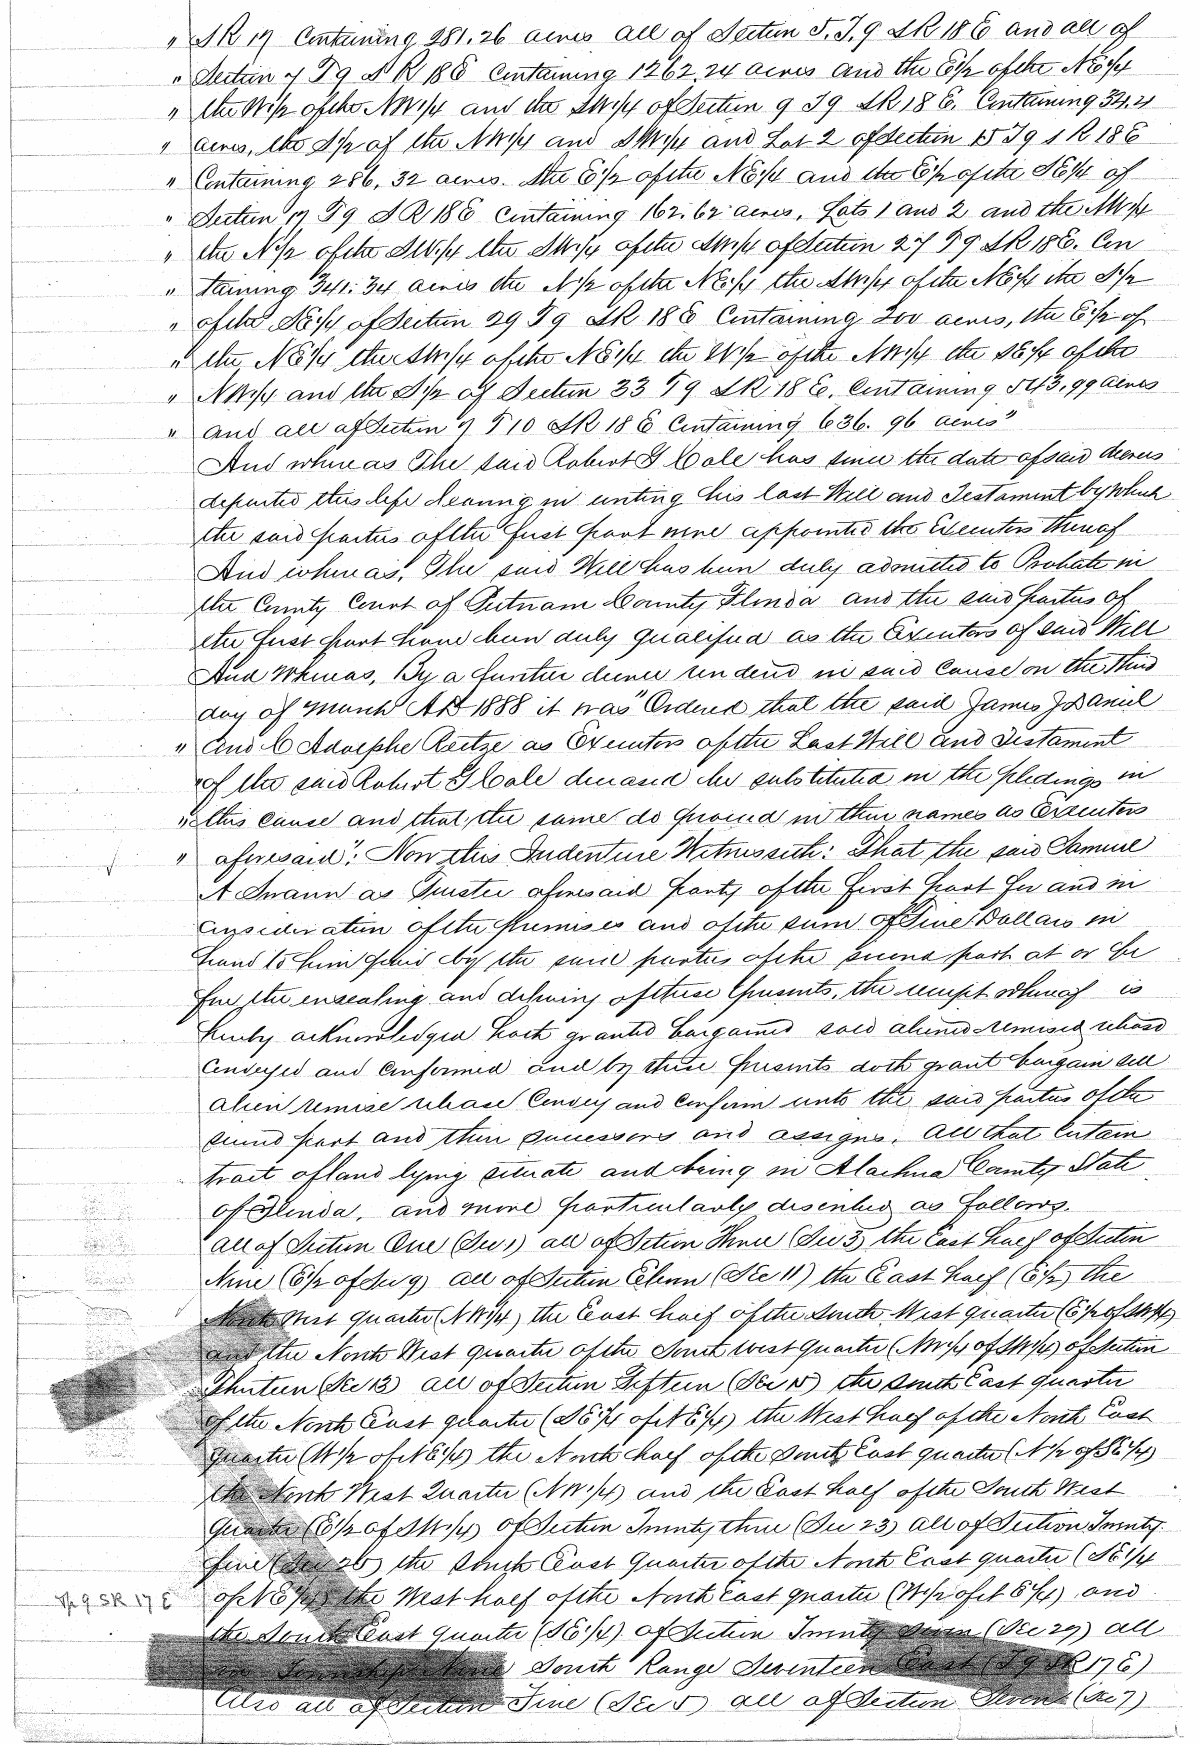 " S R 17 Containing 281.26 acres all of Section 5. T. 9 S R 18 E and all of
" Section 7 T 9 S R 18 E Containing 1262.24 acres and the E½ of the NE¼
" the W½ of the NW¼ and the SW¼ of Section 9 T9 S R 18 E. Containing
" acres, the S½ of the NW¼ and SW¼ and Lot 2 of Section 15 T9 S R 18 E
" Containing 286.32 acres. the E½ of the NE¼ and the E½ of the SE¼ of
" Section 17 T9 S R 18 E Containing 162.62 acres, Lots 1 and 2 and the NW¼
" the N½ of the SW¼ the SW¼ of the SW¼ of Section 27 T9 S R 18 E. Con
" taining 341.34 acres the N½ of the NE¼ the SW¼ of the NE¼ the S½
" of the SE¼ of Section 29 T9 S R 18 E Containing 200 acres, the E½ of
" the NE¼ the SW¼ of the NE¼ the W½ of the NW¼ the SE¼ of the
" NW¼ and the S½ of Section 33 T9 S R 18 E. Containing 543.99 acres
" and all of Section 7 T 10 S R 18 E Containing 636.96 acres"
And whereas The said Robert G Cole has since the date of said decree
departed this life leaving in writing his last Will and Testament by which
the said parties of the first part were appointed the Executors thereof
And whereas, The said Will has been duly admitted to Probate in
the County Court of Putnam County Florida and the said parties of
the first part have been duly qualified as the Executors of said Will
And Whereas, By a further decree rendered in said cause on the third
day of March AD 1888 it was "Ordered that the said James J Daniel
" and C Adolphe Reitze as Executors of the Last Will and Testament
" of the said Robert G Cole deceased be substituted in the pledings in
" this cause and that the same do proceed in their names as Executors
" aforesaid": Now this Indenture Witnesseth: That the said Samuel
A Swann as Trustee aforesaid party of the first part for and in
consideration of the premises and of the sum of Five Dollars in
hand to him paid by the said parties of the second part at or be
fore the ensealing and delivery of these presents, the receipt whereof is
hereby acknowledged hath granted bargained sold aliened remised release
conveyed and confirmed and by these presents doth grant bargain sell
alien remise release convey and confirm unto the said parties of the
second part and their successors and assigns, all that certain
tract of land lying situate and being in Alachua County State
of Florida, and more particularly described as follows.
all of Section One (Sec 1) all of Section Three (Sec 3) the East half of Section
Nine (E½ of Sec 9) all of Section Eleven (Sec 11) the East half (E½) the
North West quarter (NW¼) the East half of the South West quarter (E½ of SW¼)
and the North West quarter of the South west quarter (NW¼ of SW¼) of Section
Thirteen (Sec 13) all of Section Fifteen (Sec 15) the South East quarter
of the North East quarter (SE¼ of NE¼) the West half of the North East
quarter (W½ of NE¼) the North half of the South East quarter (N½ of SE¼)
the North West Quarter (NW¼) and the East half of the South West
Quarter (E½ of SW¼) of Section Twenty three (Sec 23) all of Section Twenty
five (Sec 25) the South East Quarter of the North East quarter (SE¼
of NE¼) the West half of the North East quarter (W½ of NE¼) and
Tp 9 S R 17 E
the South East quarter (SE¼) of Section Twenty seven (Sec 27) all
in Township Nine South Range Seventeen East (T9 S R 17 E)
Also all of Section Five (Sec 5) all of Section Seven (Sec 7)